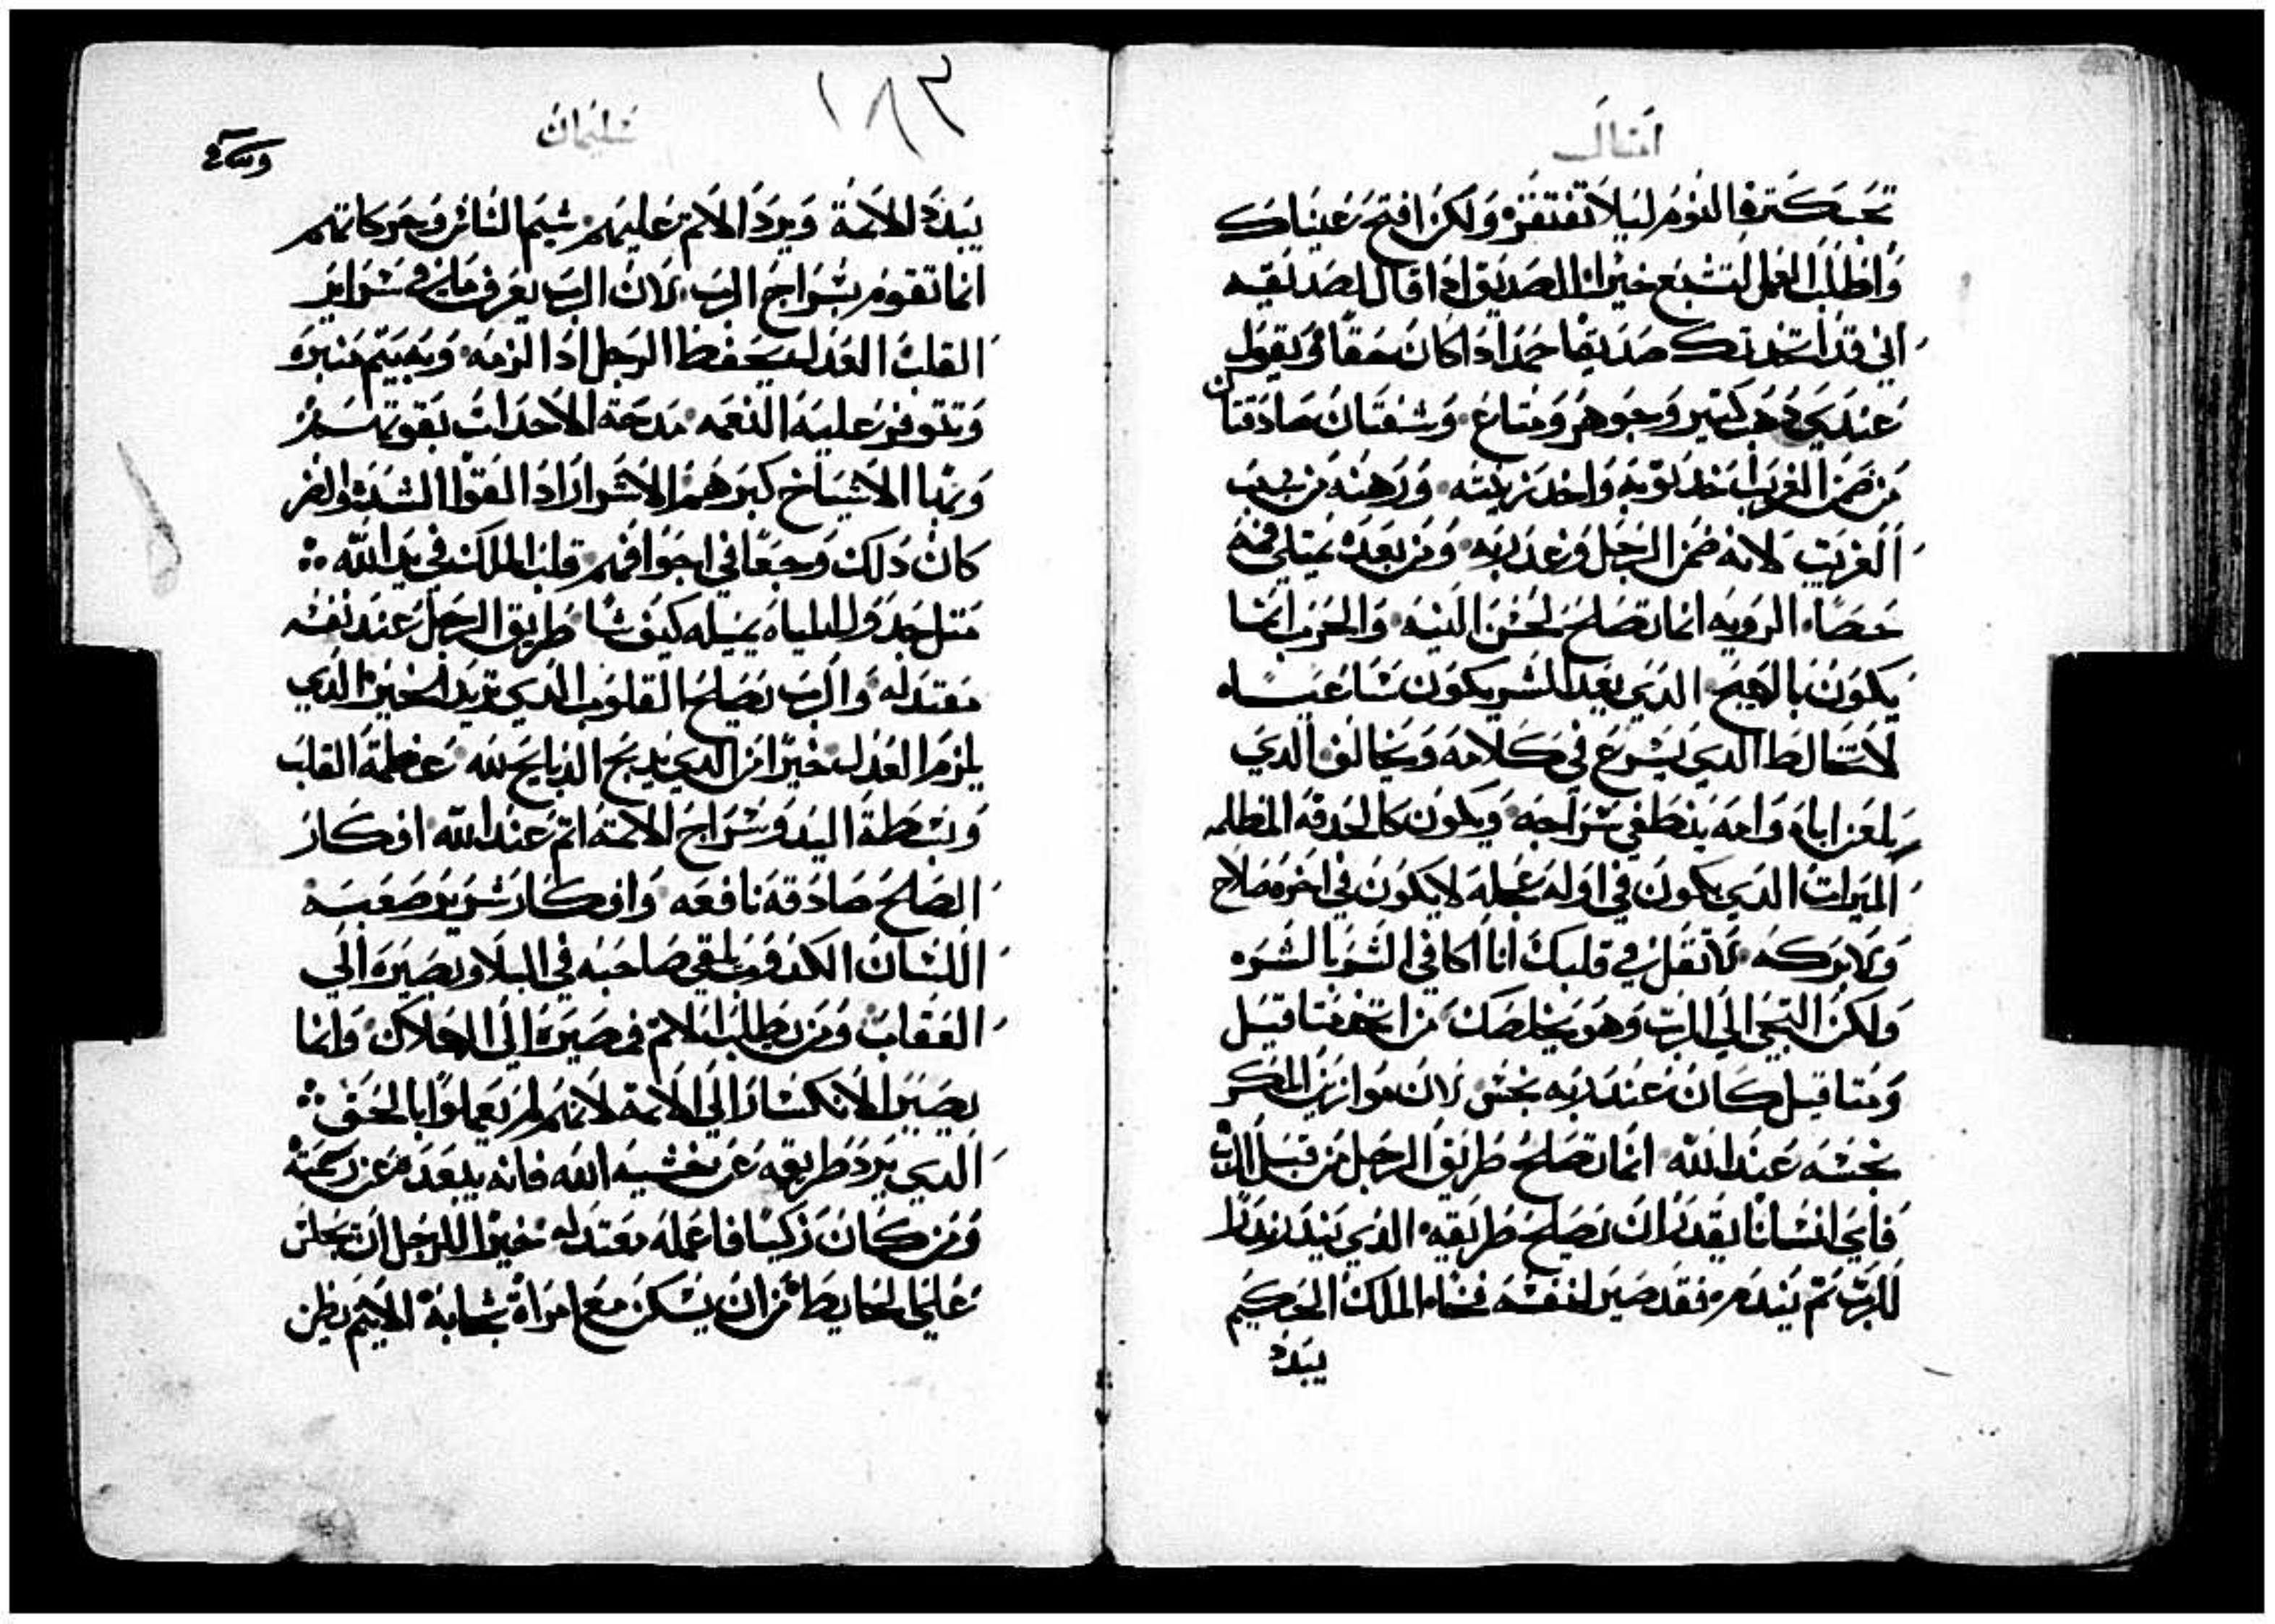 امثال
تحب كترة النوم ليلا تفتقر ولكن افتح عيناك
واطلب العمل لتشبع خيرات الصديق ادا قال لصديقه
اني قد اتخدتك صديقا حمد ادا كان حقا ويقول
عندي دهب كتير وجوهر ومتاع وشفتان صادقتان
من ضمن الغريب خد توبه واخد زينته ورهنه من بيت
الغريب لانه ضمن الرجل وعد ربه ومن بعده يمتلي فمه
حصا الرويه انما تصلح لحسن النيه والحرب انما
يكون بالهيج الدي يعد الشر يكون ساعيا
لا تخالط الدي يسرع في كلامه ويخالف الدي
يلعن اباه وامه ينطفي سراجه ويكون كالحدقه المظلمه
الميرات الدي يكون في اوله عجله لا يكون في اخره صلاح
ولا بركه لا تقل في قلبك انا اكافي الشر بالشره
ولكن التجي الي الرب وهو يخلصك من اتخد متاقيل
ومتاقيل كان عند ربه نجس لان موازين المكر
نجسه عند الله انما تصلح طريق الرجل من قبل الرب
فاي انسانا يقدر ان يصلح طريقه الدي يندر ندرا
للرب تم يندم فقد صير لنفسه فخا الملك الحكيم
يبدد
سليمان
١٨٣
يبدد الاتمة ويرد الاتم عليهم شيم الناس وحركاتهم
انما تقوم بسراج الرب لان الرب يعرف ما في سراير
القلب العدل يحفظ الرجل ادا لزمه وبه يتم منبره
وتتوفر عليه النعمه مدحة الاحدات بقوتهم
وبها الاشياخ كبرهم الاشرار ادا لقوا الشدة والضر
كان دلك وجعا في اجوافهم قلب الملك في يد الله
متل جدول المياه يميله كيف شا طريق الرجل عند نفسه
معتدله والرب يصلح القلوب الدي تريد الخير الدي
يلزم العدل خيرا من الدي يدبح الدبايح لله عظمة القلب
وبسطة اليد وسراج الاتمة اتم عند الله افكار
الصالح صادقه نافعه وافكار شرير صعبه
اللسان الكدوب يلقي صاحبه في البلا ويصيره الي
العقاب ومن يطلب الاتم فمصيره الي الهلاك وانما
يصير الانكسار الي الاتمة لانهم لم يعملوا بالحق
الدي يرد طريقه عن خشية الله فانه يبعد من رحمته
ومن كان زكيا فاعماله معتدله خيرا للرجل ان يجلس
علي الحايط من ان يسكن مع امراة سبابة الاتيم يظن